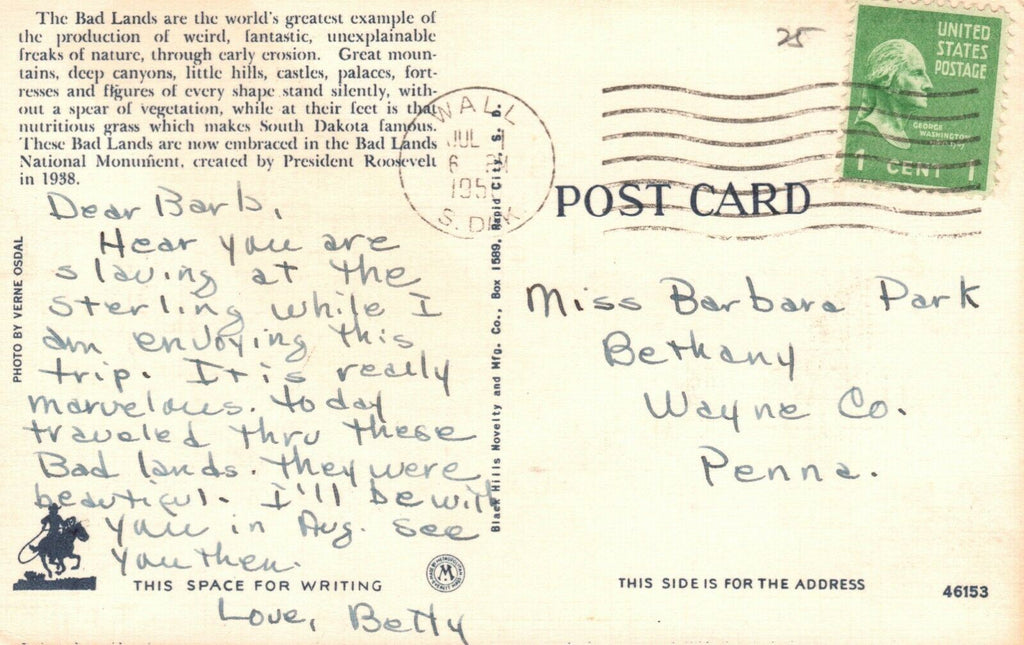 The Bad Lands are the world's greatest example of
the production of weird, fantastic, unexplainable
freaks of nature, through early erosion. Great moun-
tains, deep canyons, little hills, castles, palaces, fort-
resses and figures of every shape stand silently, with-
out a spear of vegetation, while at their feet is that
nutritious grass which makes South Dakota famous.
These Bad Lands are now embraced in the Bad Lands
National Monument, created by President Roosevelt
in 1938.
Dear Barb,
Hear you are
slaving at the
Sterling while I
am enjoying this
trip. It is really
marvelous. today
traveled thru these
Bad lands. they were
beautiful. I'll be with
you in Aug. see
you then.
Love, Betty
PHOTO BY VERNE OSDAL
THIS SPACE FOR WRITING
Black Hills Novelty and Mfg. Co., Box 1589, Rapid City, S. D.
WALL
JUL
6 PM
195
S. DAK
25
UNITED
STATES
POSTAGE
GEORGE
WASHINGTON
1 CENT 1
POST CARD
Miss Barbara Park
Bethany
Wayne Co.
Penna.
THIS SIDE IS FOR THE ADDRESS
46153